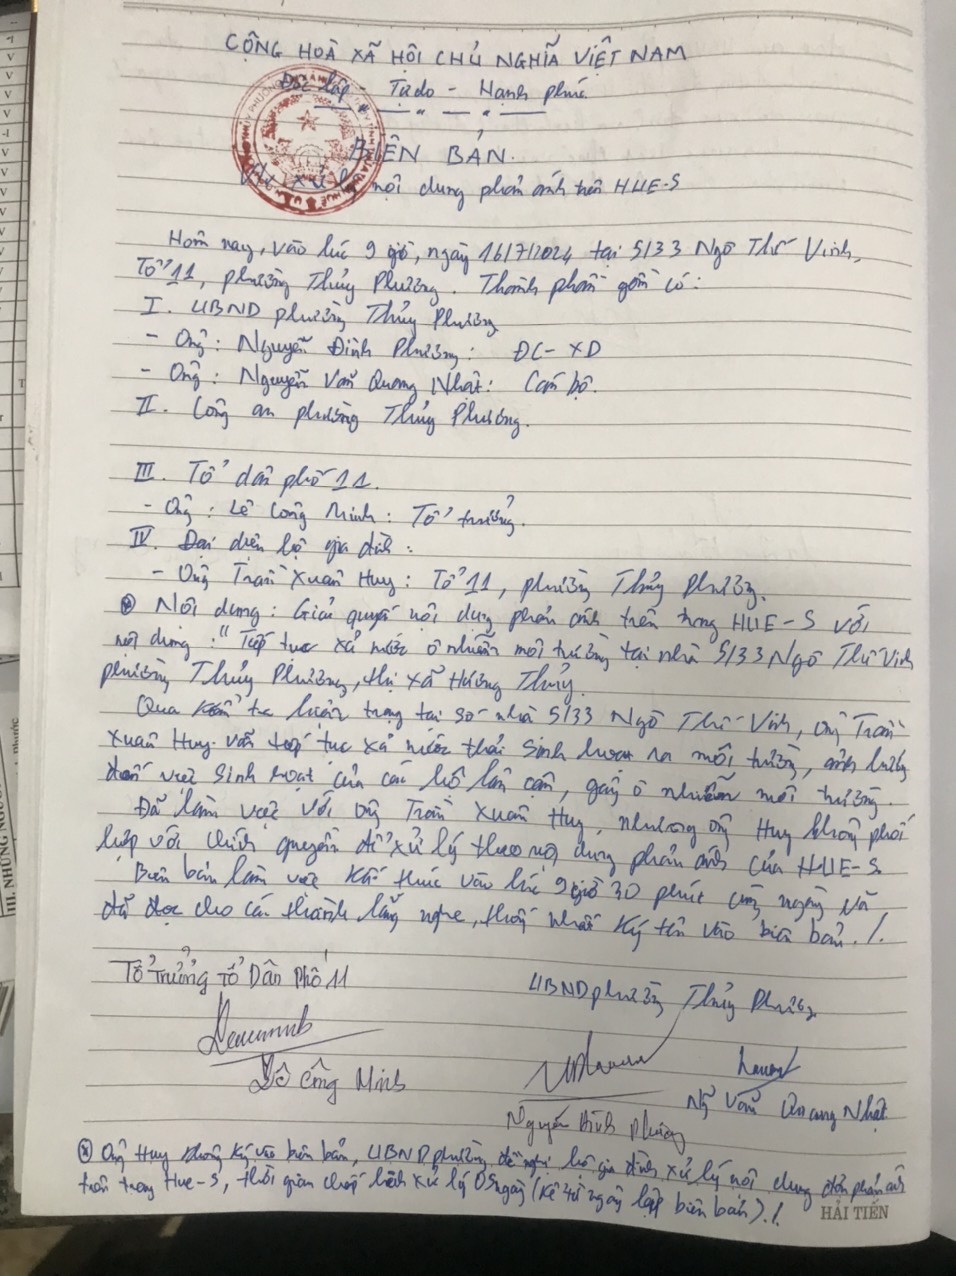 CỘNG HOÀ XÃ HỘI CHỦ NGHĨA VIỆT NAM
Độc lập - Tự do - Hạnh phúc
BIÊN BẢN
V/v xử lý nội dung phản ánh trên HUE-S
Hôm nay, vào lúc 9 giờ, ngày 16/7/2024 tại 5/33 Ngô Thế Vinh,
Tổ 11, phường Thủy Phương. Thành phần gồm có:
I. UBND phường Thủy Phương
- Ông: Nguyễn Đình Phương: ĐC-XD
- Ông: Nguyễn Văn Quang Nhật: Cán bộ.
II. Công an phường Thủy Phương.
III. Tổ dân phố 11.
- Ông: Lê Công Minh: Tổ trưởng.
IV. Đại diện hộ gia đình:
- Ông Trần Xuân Huy: Tổ 11, phường Thủy Phương.
* Nội dung: Giải quyết nội dung phản ánh trên trang HUE-S với
nội dung: "Tiếp tục xả nước ô nhiễm môi trường tại nhà 5/33 Ngô Thế Vinh
phường Thủy Phương, thị xã Hương Thủy.
Qua kiểm tra hiện trạng tại số nhà 5/33 Ngô Thế Vinh, ông Trần
Xuân Huy vẫn tiếp tục xả nước thải sinh hoạt ra môi trường, ảnh hưởng
đến việc sinh hoạt của các hộ lân cận, gây ô nhiễm môi trường.
Đã làm việc với ông Trần Xuân Huy, nhưng ông Huy không phối
hợp với chính quyền để xử lý theo nội dung phản ánh của HUE-S.
Biên bản làm việc kết thúc vào lúc 9 giờ 30 phút cùng ngày và
đã đọc cho các thành lắng nghe, thống nhất ký tên vào biên bản./.
Tổ Trưởng Tổ Dân Phố 11
UBND phường Thủy Phương
Lê Công Minh
Nguyễn Đình Phương
Ng Văn Quang Nhật
* Ông Huy không ký vào biên bản, UBND phường đề nghị hộ gia đình xử lý nội dung đơn phản ánh
trên trang Hue-S, thời gian chấp hành xử lý 05 ngày (kể từ ngày lập biên bản)./.
HẢI TIẾN